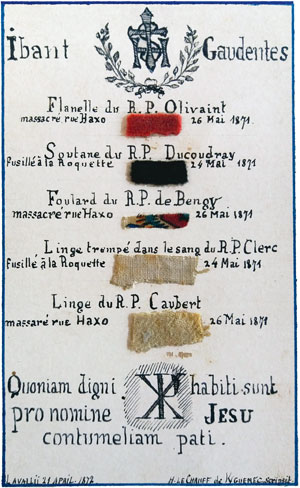 Ibant Gaudentes
Flanelle du R.P. Olivaint
massacré rue Haxo 26 Mai 1871.
Soutane du R.P. Ducoudray
Fusillé à la Roquette 24 Mai 1871
Foulard du R.P. de Bengy
massacré rue Haxo 26 Mai 1871
Linge trempé dans le sang du R.P. Clerc
Fusillé à la Roquette 24 Mai 1871
Linge du R.P. Caubert
massaré rue Haxo 26 Mai 1871
Quoniam digni habiti sunt
pro nomine JESU
contumeliam pati.
LAVALLII 21 APRIL. 1872 H. LE CHAUFF DE